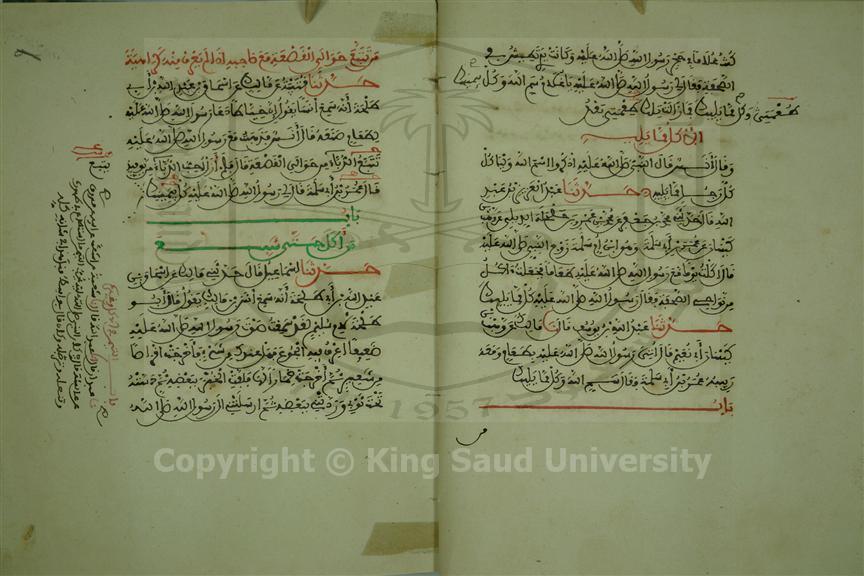 كنت غلاما في حجر رسول الله صلى الله عليه وكانت يدي تطيش في
الصحفة فقال لي رسول الله صلى الله عليه يا غلام سم الله وكل بيمينك
وكل مما يليك فما زالت تلك طعمتي بعد
الاكل مما يليه
وقال أنس قال النبي صلى الله عليه اذكروا اسم الله وليأكل
كل رجل مما يليه حدثنا عبد العزيز بن عبد
الله قال حدثني محمد بن جعفر عن محمد بن عمرو بن حلحلة الديلي عن وهب بن
كيسان عن عمر بن أبي سلمة وهو ابن أم سلمة زوج النبي صلى الله عليه
قال أكلت يوما مع رسول الله صلى الله عليه طعاما فجعلت آكل
من نواحي الصحفة فقال لي رسول الله صلى الله عليه كل مما يليك
حدثنا عبد الله بن يوسف قال أنا مالك عن وهب بن
كيسان أبي نعيم قال أتي رسول الله صلى الله عليه بطعام ومعه
ربيبه عمر بن أبي سلمة فقال سم الله وكل مما يليك
باب
من
من تتبع حوالي القصعة مع صاحبه اذا لم يعرف منه كراهية
حدثنا قتيبة عن مالك عن اسحاق بن عبد الله بن أبي
طلحة أنه سمع أنسا يقول إن خياطا دعا رسول الله صلى الله عليه
لطعام صنعه قال أنس فذهبت مع رسول الله صلى الله عليه
يتتبع الدباء من حوالي القصعة قال فلم أزل أحب الدباء من يومئذ
قال عمر بن أبي سلمة قال لي رسول الله صلى الله عليه كل بيمينك
باب
من أكل حتى شبع
حدثنا اسماعيل قال حدثني مالك عن اسحاق بن
عبد الله بن أبي طلحة أنه سمع أنس بن مالك يقول قال أبو
طلحة لأم سليم لقد سمعت صوت رسول الله صلى الله عليه
ضعيفا أعرف فيه الجوع فهل عندك من شيء فأخرجت أقراصا
من شعير ثم أخرجت خمارا لها فلفت الخبز ببعضه ثم دسته
تحت ثوبي وردتني ببعضه ثم أرسلتني إلى رسول الله صلى الله
1957
Copyright © King Saud University